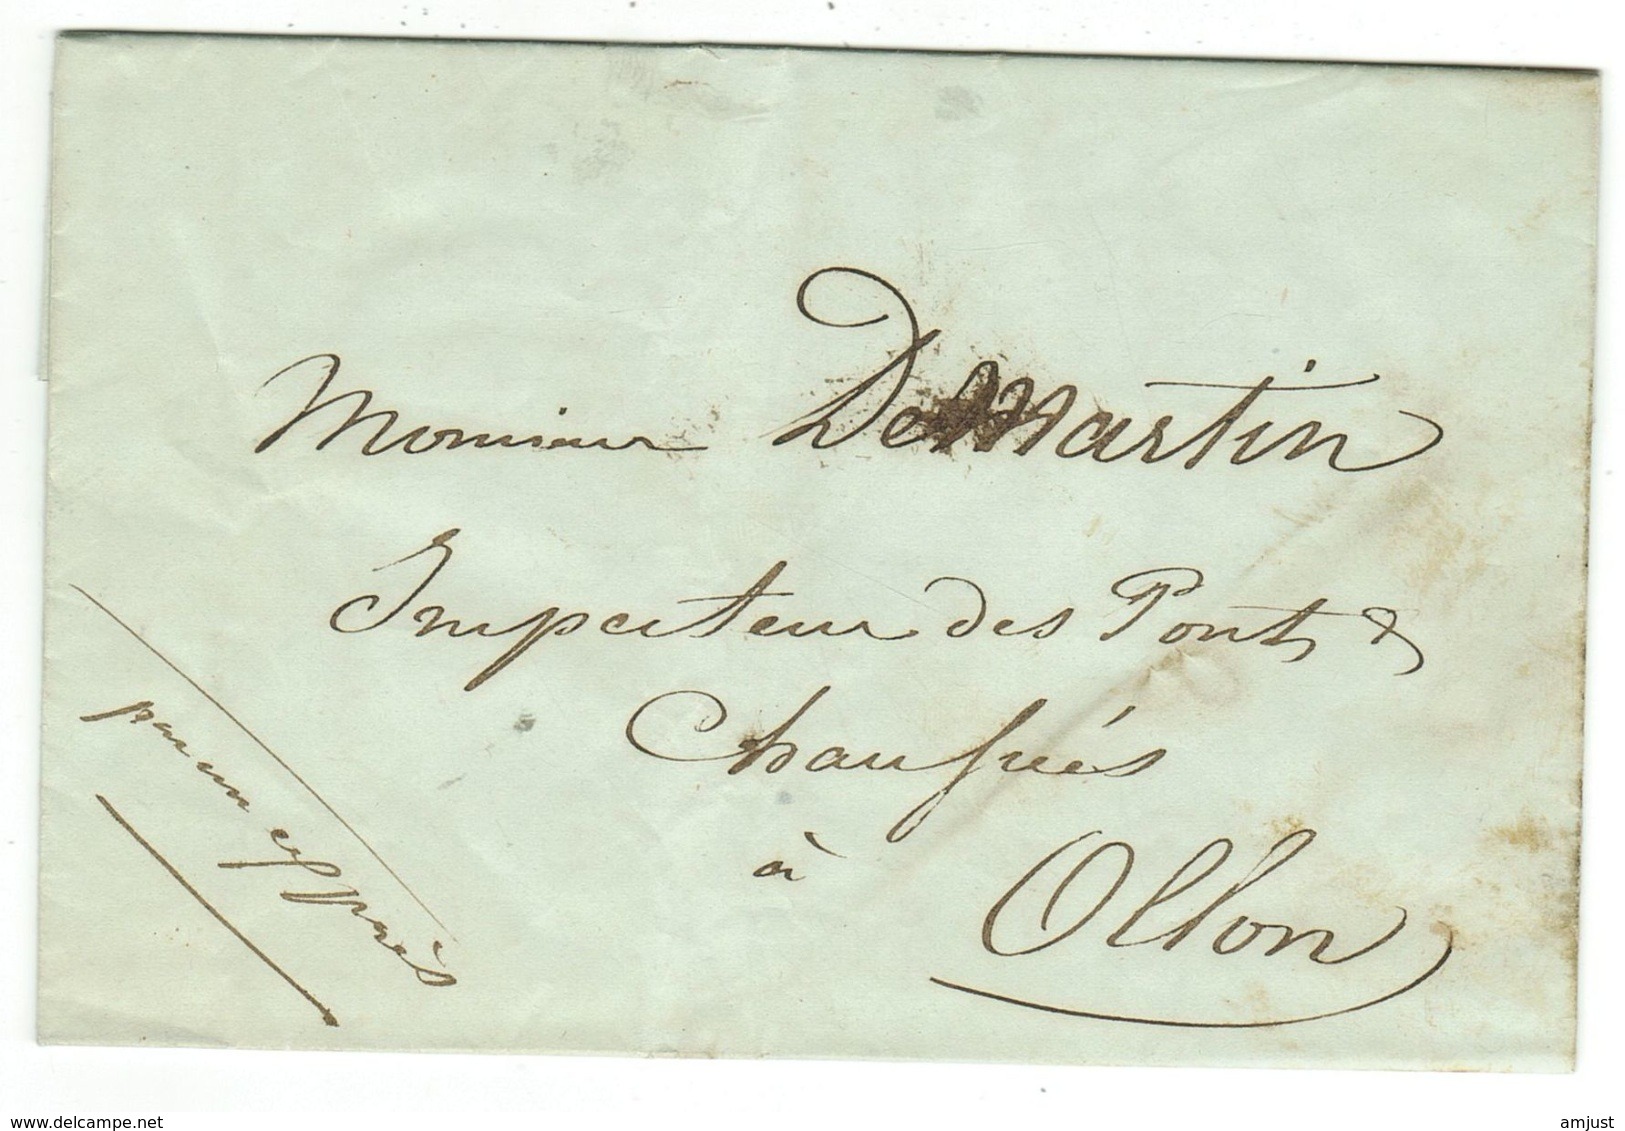 Monsieur DeMartin
Inspecteur des Ponts &
Chaussées
à
Ollon
par un exprès
www.delcampe.net
amjust